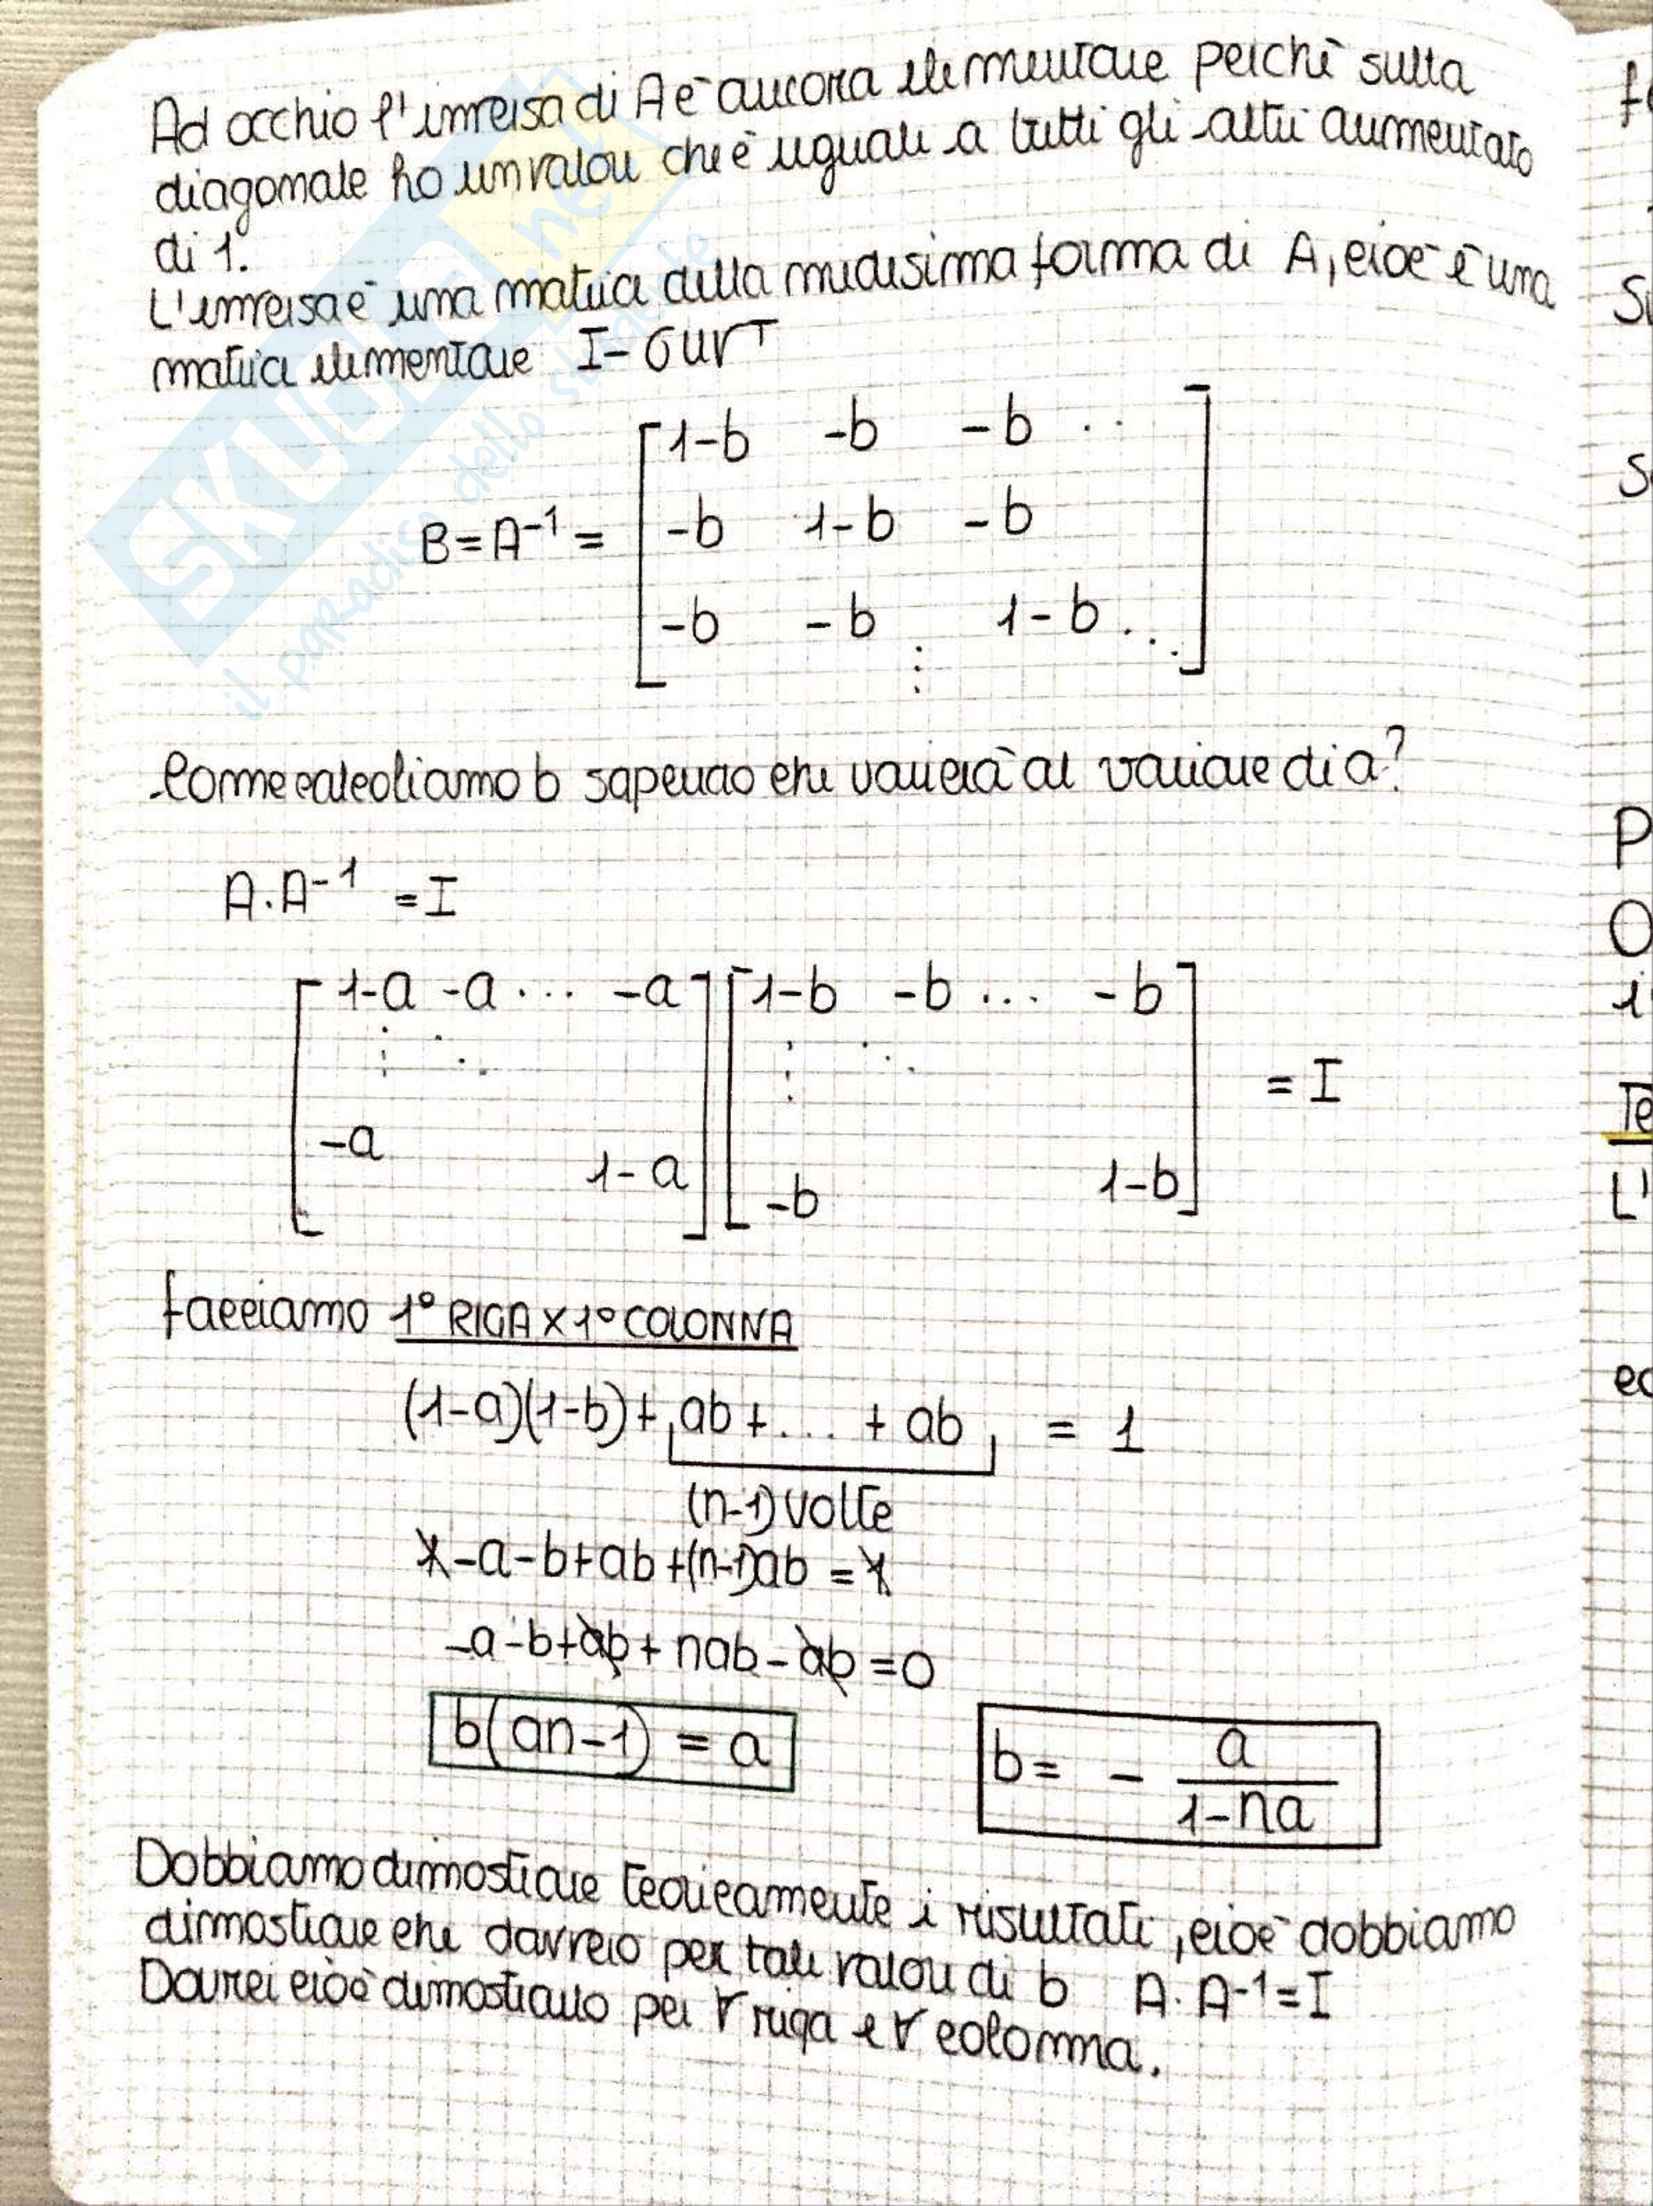 Ad occhio l'inversa di A è ancora elementare perchè sulla
diagonale ho un valore che è uguale a tutti gli altri aumentato
di 1.
L'inversa è una matrice della medesima forma di A, cioè è una
matrice elementare I-σuvᵀ
B=A⁻¹=
1-b -b -b ..
-b 1-b -b
-b -b 1-b ...
⋮
Come calcoliamo b sapendo che varierà al variare di a?
A·A⁻¹ =I
[1-a -a ... -a] [1-b -b ... -b]
⋮ ⋱ ⋮ ⋱
= I
-a 1-a -b 1-b
facciamo 1° RIGA x 1° COLONNA
(1-a)(1-b)+ ab+... + ab = 1
(n-1) volte
1-a-b+ab+(n-1)ab =1
-a-b+ab+ nab-ab =0
b(an-1) = a b= - a/(1-na)
Dobbiamo dimostrare teoricamente i risultati, cioè dobbiamo
dimostrare che davvero per tale valore di b A·A⁻¹=I
Dovrei cioè dimostrarlo per ∀ riga e ∀ colonna.
SKUOLA.net
il paradiso dello studente